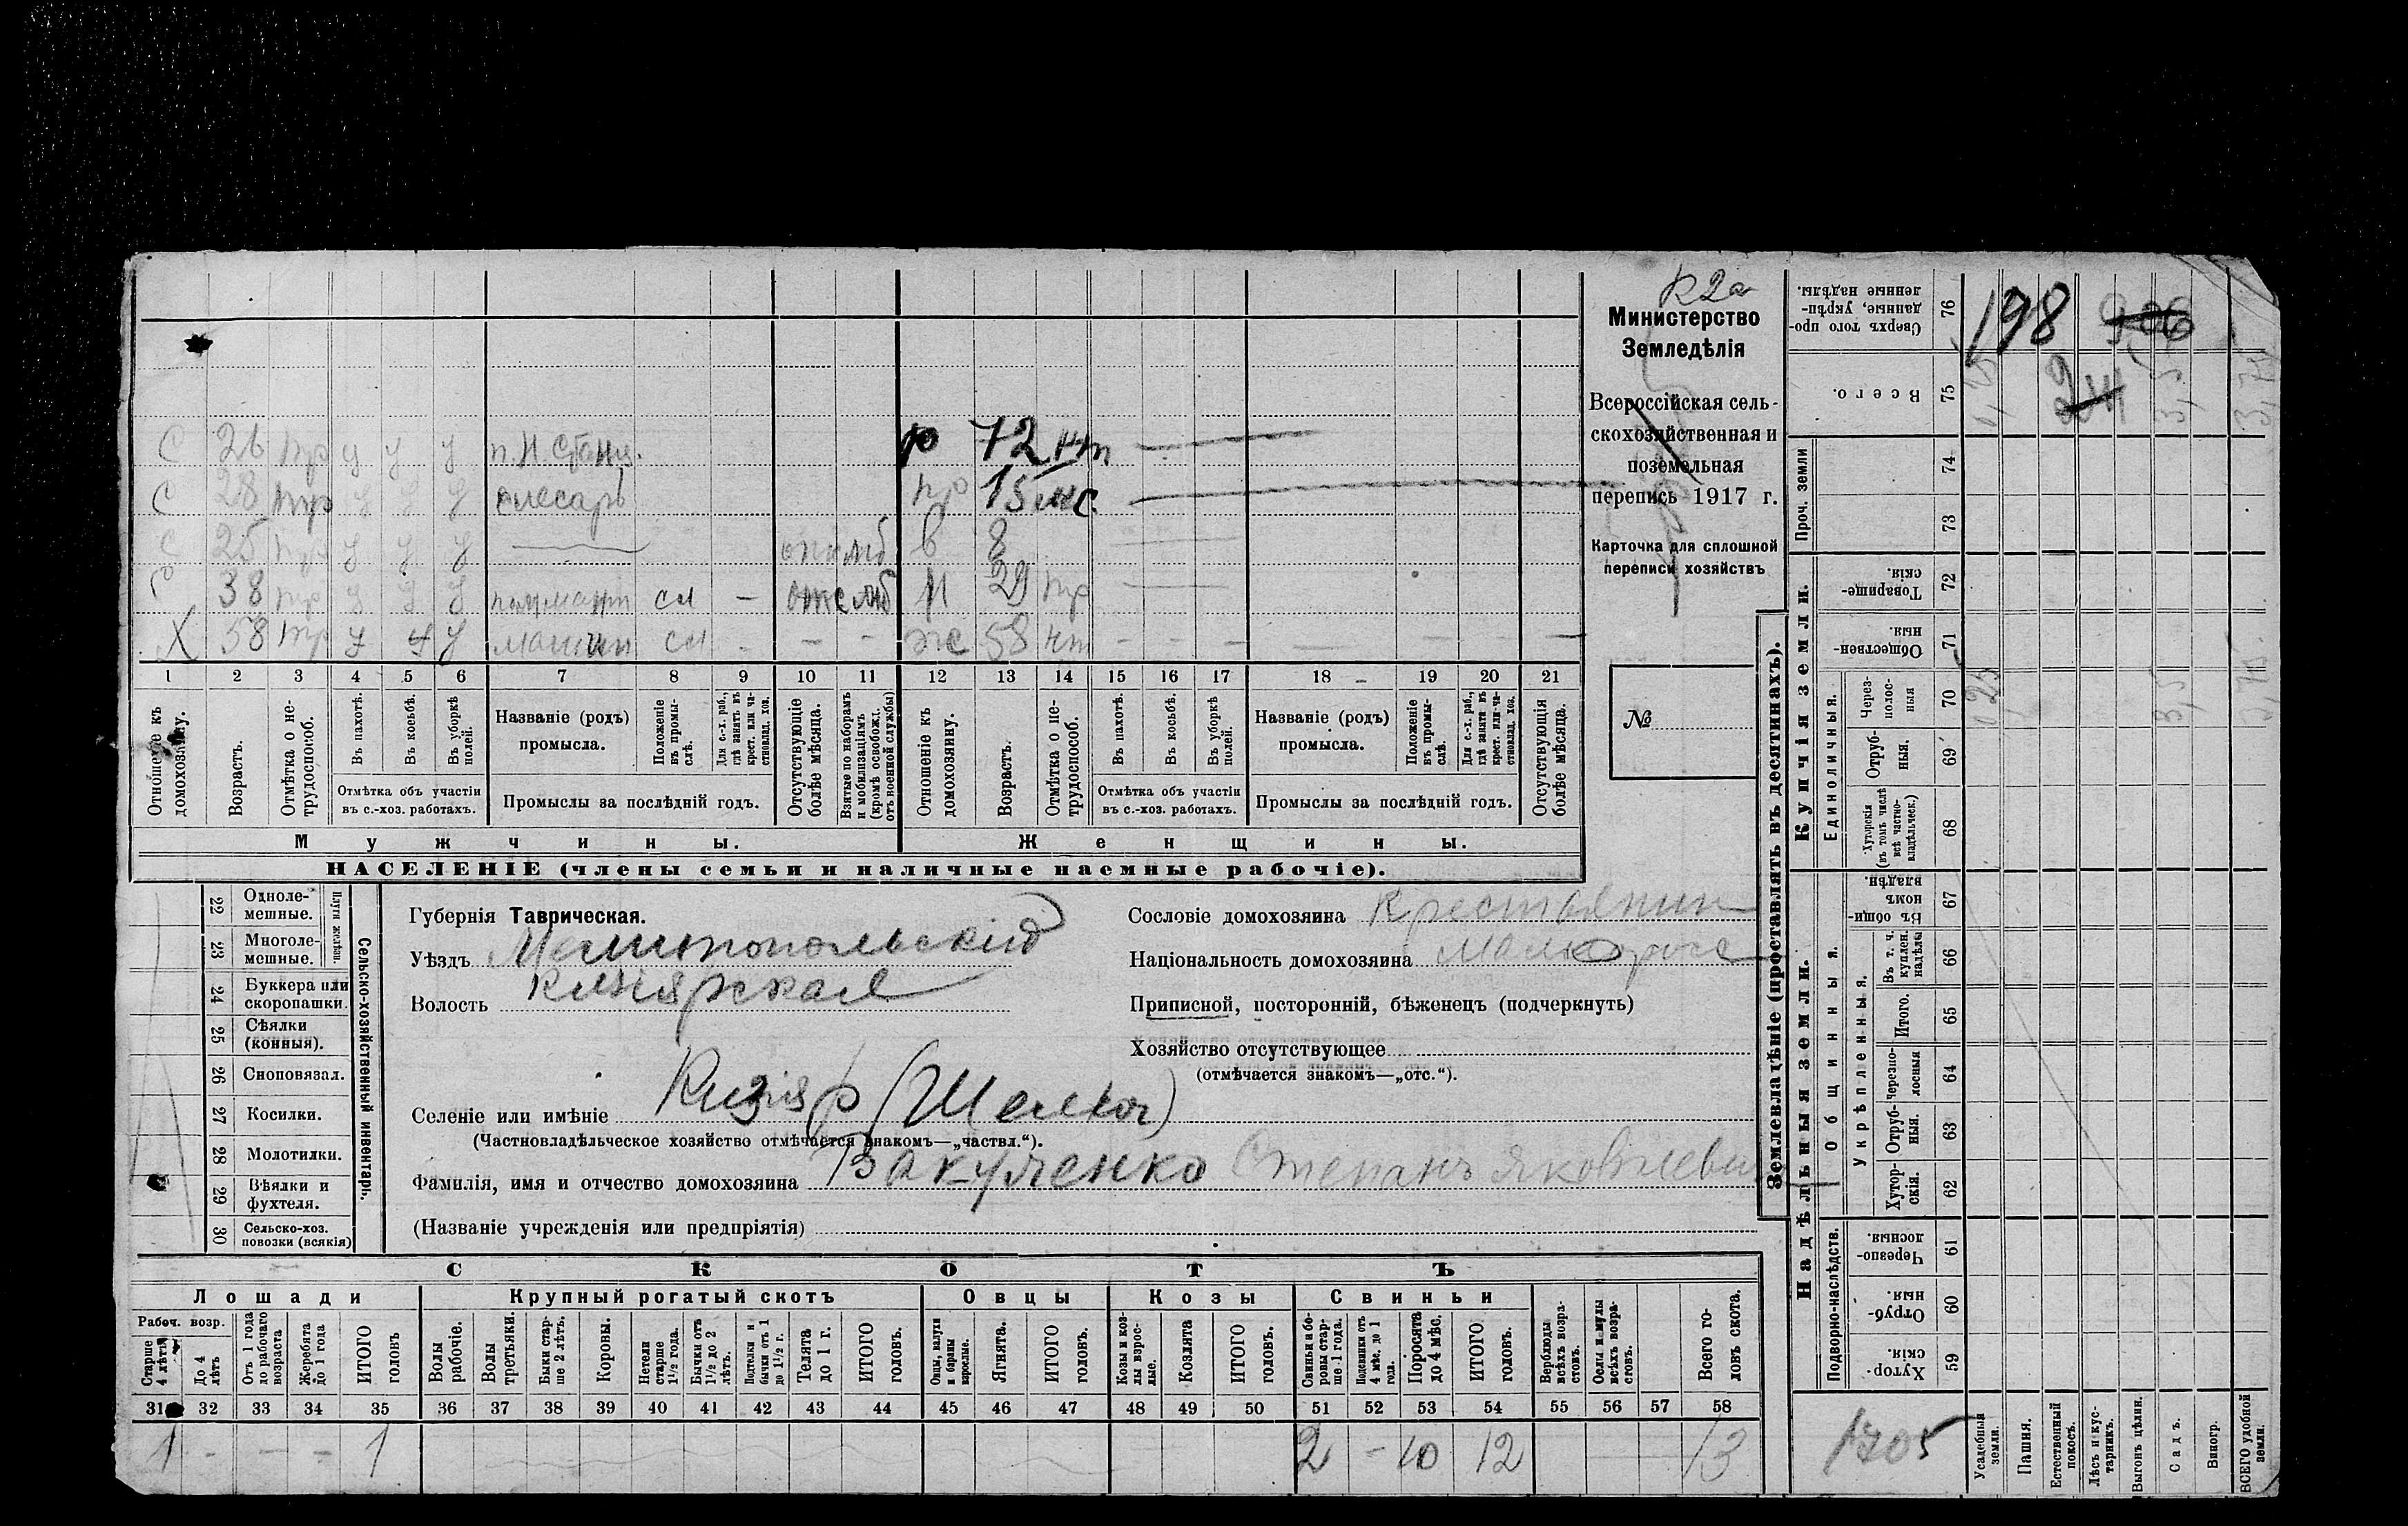 К2а
Министерство
Земледѣлія
Всероссійская сель-
скохозяйственная и
поземельная
перепись 1917 г.
Карточка для сплошной
переписи хозяйствъ
№
С 26 тр у у у п.н.
С 28 тр у у у слесарь
С 25 тр у у у
С 38 тр у у у см —
Х 58 тр у у у машин см - - -
р 72 нт —
пр 15 —
в 8
н 29 тр
ж 58 нт - - - — - - -
1 2 3 4 5 6 7 8 9 10 11 12 13 14 15 16 17 18 19 20 21
Отношеніе къ домохозяину.
Возрастъ.
Отмѣтка о не-трудоспособ.
Въ пахотѣ.
Въ косьбѣ.
Въ уборкѣ полей.
Отмѣтка объ участіи
въ с.-хоз. работахъ.
Названіе (родъ)
промысла.
Положеніе въ промы-слѣ.
Для с.-х. раб., гдѣ занятъ въ крест. или ча-стновлад. хоз.
Промыслы за послѣдній годъ.
Отсутствующіе болѣе мѣсяца.
Взятые по наборамъ и мобилизаціямъ (кромѣ освобожд. отъ военной службы)
Отношеніе къ домохозяину.
Возрастъ.
Отмѣтка о не-трудоспособ.
Въ пахотѣ.
Въ косьбѣ.
Въ уборкѣ полей.
Отмѣтка объ участіи
въ с.-хоз. работахъ.
Названіе (родъ)
промысла.
Положеніе въ промы-слѣ.
Для с.-х. раб., гдѣ занята въ крест. или ча-стновлад. хоз.
Промыслы за послѣдній годъ.
Отсутствующія болѣе мѣсяца.
Мужчины.
Женщины.
НАСЕЛЕНІЕ (члены семьи и наличные наемные рабочіе).
22 Одноле-мешные.
23 Многоле-мешные.
Плуги желѣз.
24 Буккера или скоропашки.
25 Сѣялки (конныя).
26 Сноповязал.
27 Косилки.
28 Молотилки.
29 Вѣялки и фухтеля.
30 Сельско-хоз. повозки (всякія)
Сельско-хозяйственный инвентарь.
Губернія Таврическая.
Уѣздъ Мелитопольский
Волость Кизіярская
Селеніе или имѣніе Кизіяр (Шелюг)
(Частновладѣльческое хозяйство отмѣчается знакомъ—„частвл.“).
Фамилія, имя и отчество домохозяина Вакуленко Степанъ Яковлевич
(Названіе учрежденія или предпріятія)
Сословіе домохозяина Крестьянин
Національность домохозяина Малоросс
Приписной, посторонній, бѣженецъ (подчеркнуть)
Хозяйство отсутствующее
(отмѣчается знакомъ—„отс.“).
СКОТЪ
Лошади
Рабоч. возр.
Старше 4 лѣтъ
До 4 лѣтъ
Отъ 1 года до рабочаго возраста
Жеребята до 1 года
ИТОГО головъ
Крупный рогатый скотъ
Волы рабочіе.
Волы третьяки.
Быки стар-ше 2 лѣтъ.
Коровы.
Нетели старше 1½ года.
Бычки отъ 1½ до 2 лѣтъ.
Подтелки и бычки отъ 1 до 1½ г.
Телята до 1 г.
ИТОГО головъ.
Овцы
Овцы, валухи и бараны взрослые.
Ягнята.
ИТОГО головъ.
Козы
Козы и коз-лы взрос-лые.
Козлята
ИТОГО головъ.
Свиньи
Свиньи и бо-ровы стар-ше 1 года.
Подсвинки отъ 4 мѣс. до 1 года.
Поросята до 4 мѣс.
ИТОГО головъ.
Верблюды всѣхъ возра-стовъ.
Ослы и мулы всѣхъ возра-стовъ.
Всего го-ловъ скота.
31 32 33 34 35 36 37 38 39 40 41 42 43 44 45 46 47 48 49 50 51 52 53 54 55 56 57 58
1 - - - 1 2 - 10 12 13
Землевладѣніе (проставлять въ десятинахъ).
Надѣльныя земли.
Купчія земли.
Проч. земли
Подворно-наслѣдств.
Общинныя.
Укрѣпленныя.
Единоличныя.
Сверхъ того про-данные, укрѣп-ленные надѣлы. 76
Всего. 75
74
73
Товарище-скія. 72
Обществен-ныя. 71
Через-полос-ныя 70
Отруб-ныя. 69
Хуторскія (въ томъ числѣ всѣ частно-владѣльческ.) 68
Въ общи-номъ владѣн. 67
Въ т. ч. куплен. надѣлы 66
Итого. 65
Черезпо-лосныя 64
Отруб-ныя. 63
Хутор-скія. 62
Черезпо-лосныя. 61
Отруб-ныя. 60
Хутор-скія. 59
198
24
0,25
3,5
1705
Усадебныя земли.
Пашня.
Естественный покосъ.
Лѣсъ и кус-тарникъ.
Выгонъ цѣлин.
Садъ.
Виногр.
ВСЕГО удобной земли.